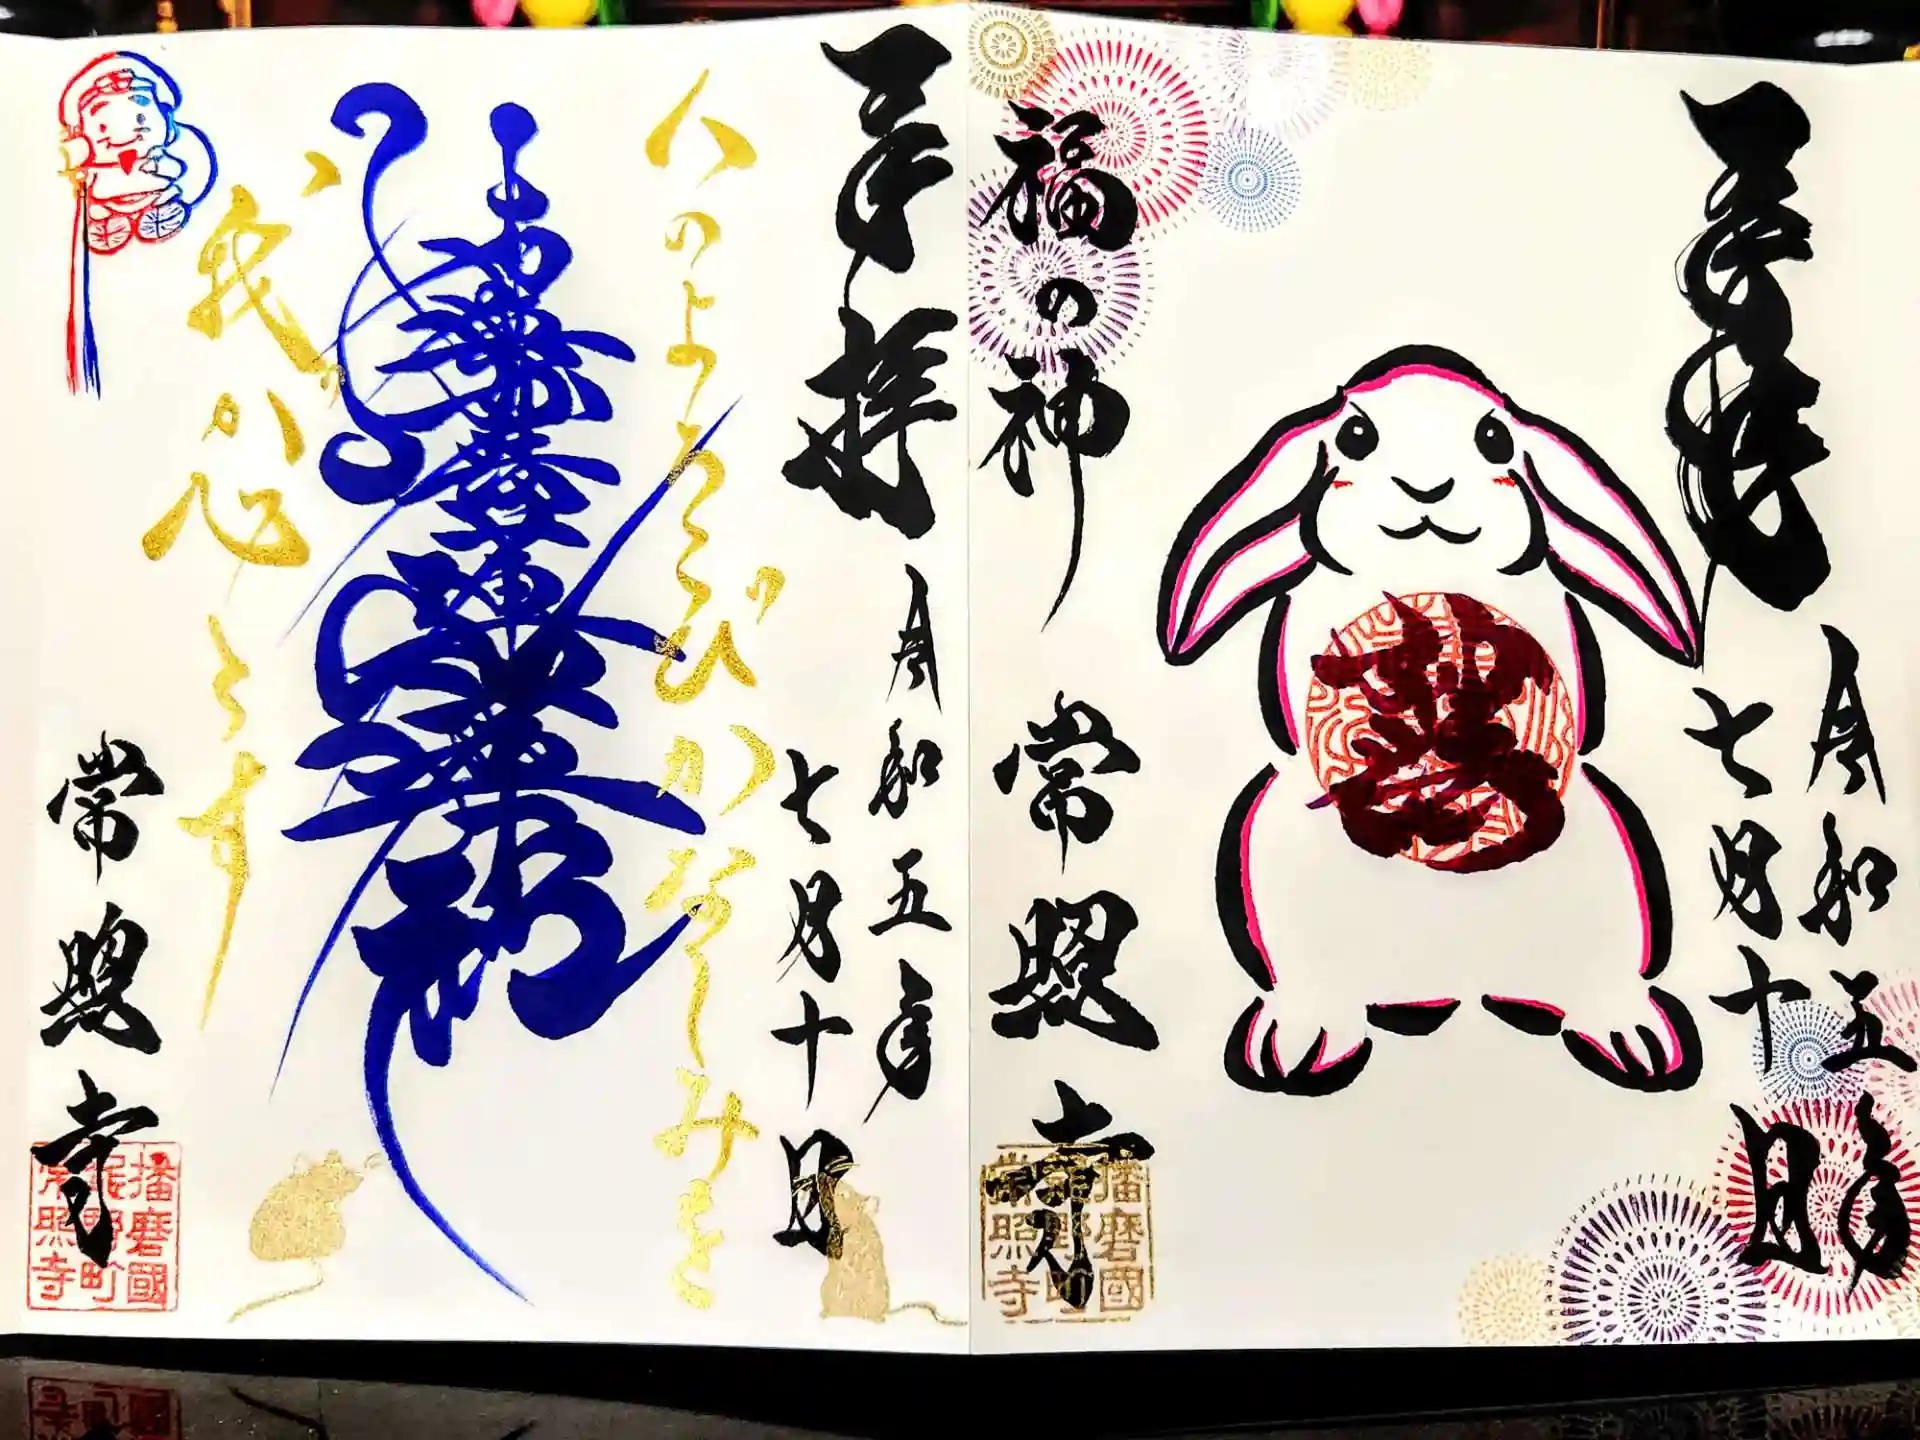 奉拝
令和五年
七月十日
福の神
常照寺
播磨國
龍野町
常照寺
奉拝
令和五年
七月十日
人のよろこびかなしみを
我が心とす
常照寺
播磨國
龍野町
常照寺